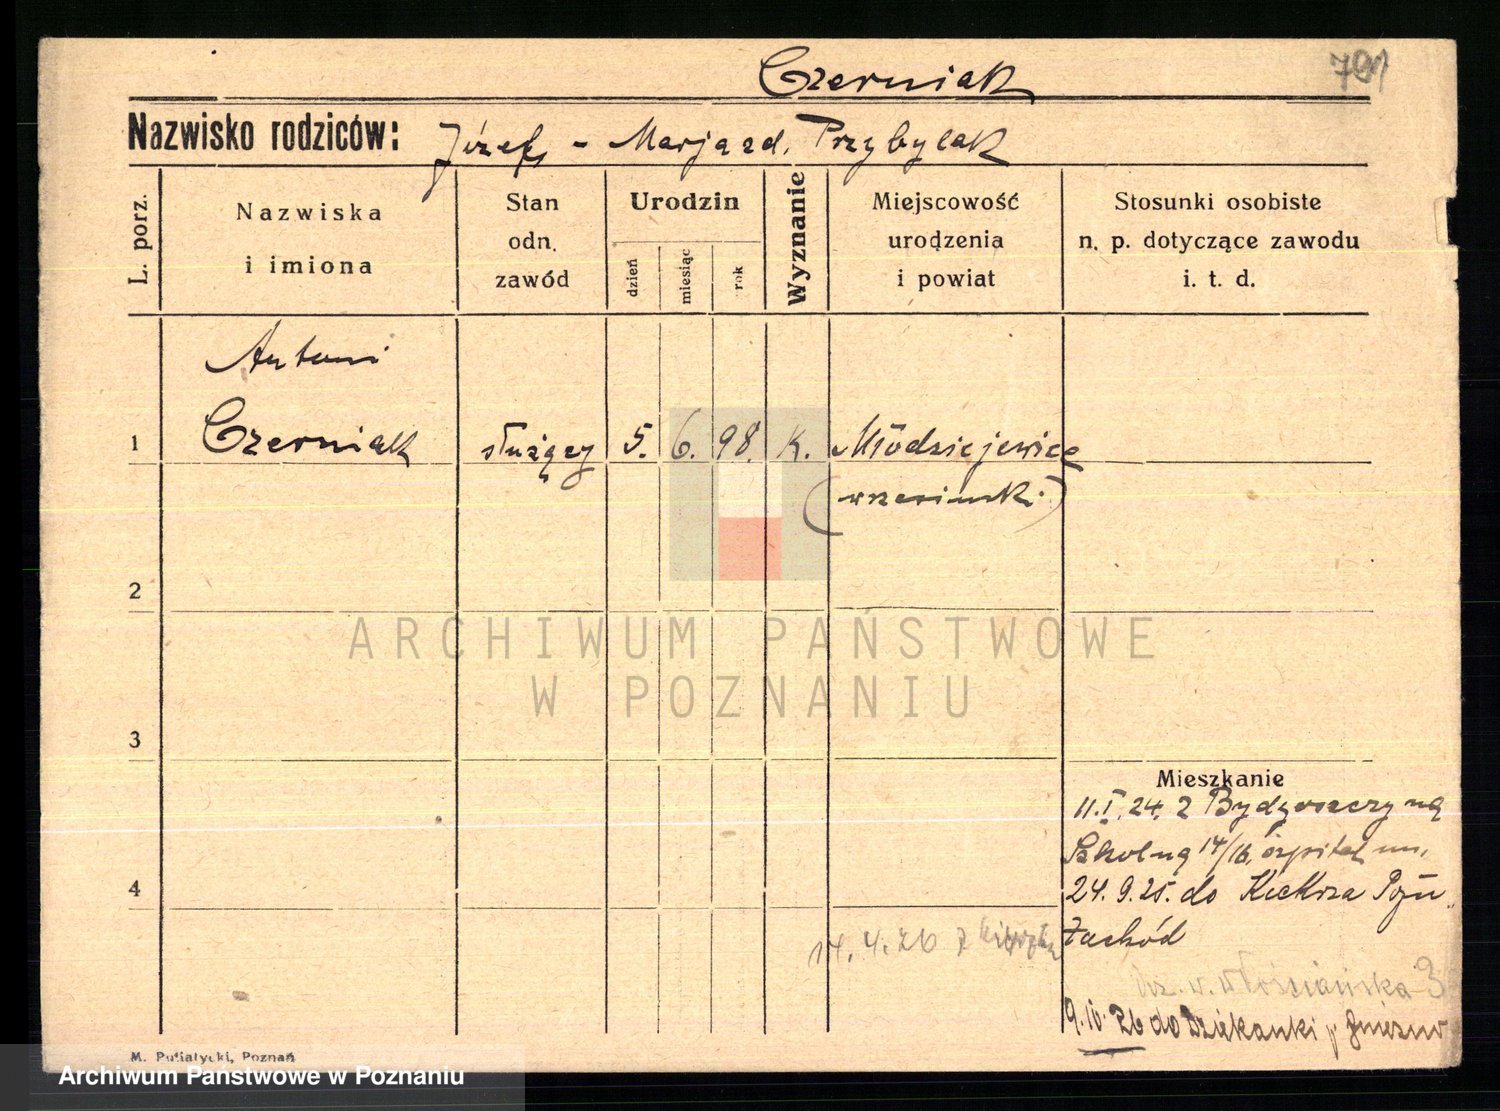 Czerniak
Nazwisko rodziców: Józef - Marja zd. Przybylak
L. porz.
Nazwiska
i imiona
Stan
odn.
zawód
Urodzin
dzień
miesiąc
rok
Wyznanie
Miejscowość
urodzenia
i powiat
Stosunki osobiste
n. p. dotyczące zawodu
i. t. d.
Antoni
1 Czerniak służący 5. 6. 98. K. Młodziejewice
(wrzesiński)
2
ARCHIWUM PAŃSTWOWE
W POZNANIU
3
Mieszkanie
11.I.24. z Bydgoszczy na
Szkolną 14/16, szpital
4
24.9.25. do Kiekrza Pozn.
Zachód
14.4.26 z Kiekrza
w. Włościańska 3
9.IV.26 do Dziekanki p. Gniezno
M. Putiatycki, Poznań
Archiwum Państwowe w Poznaniu